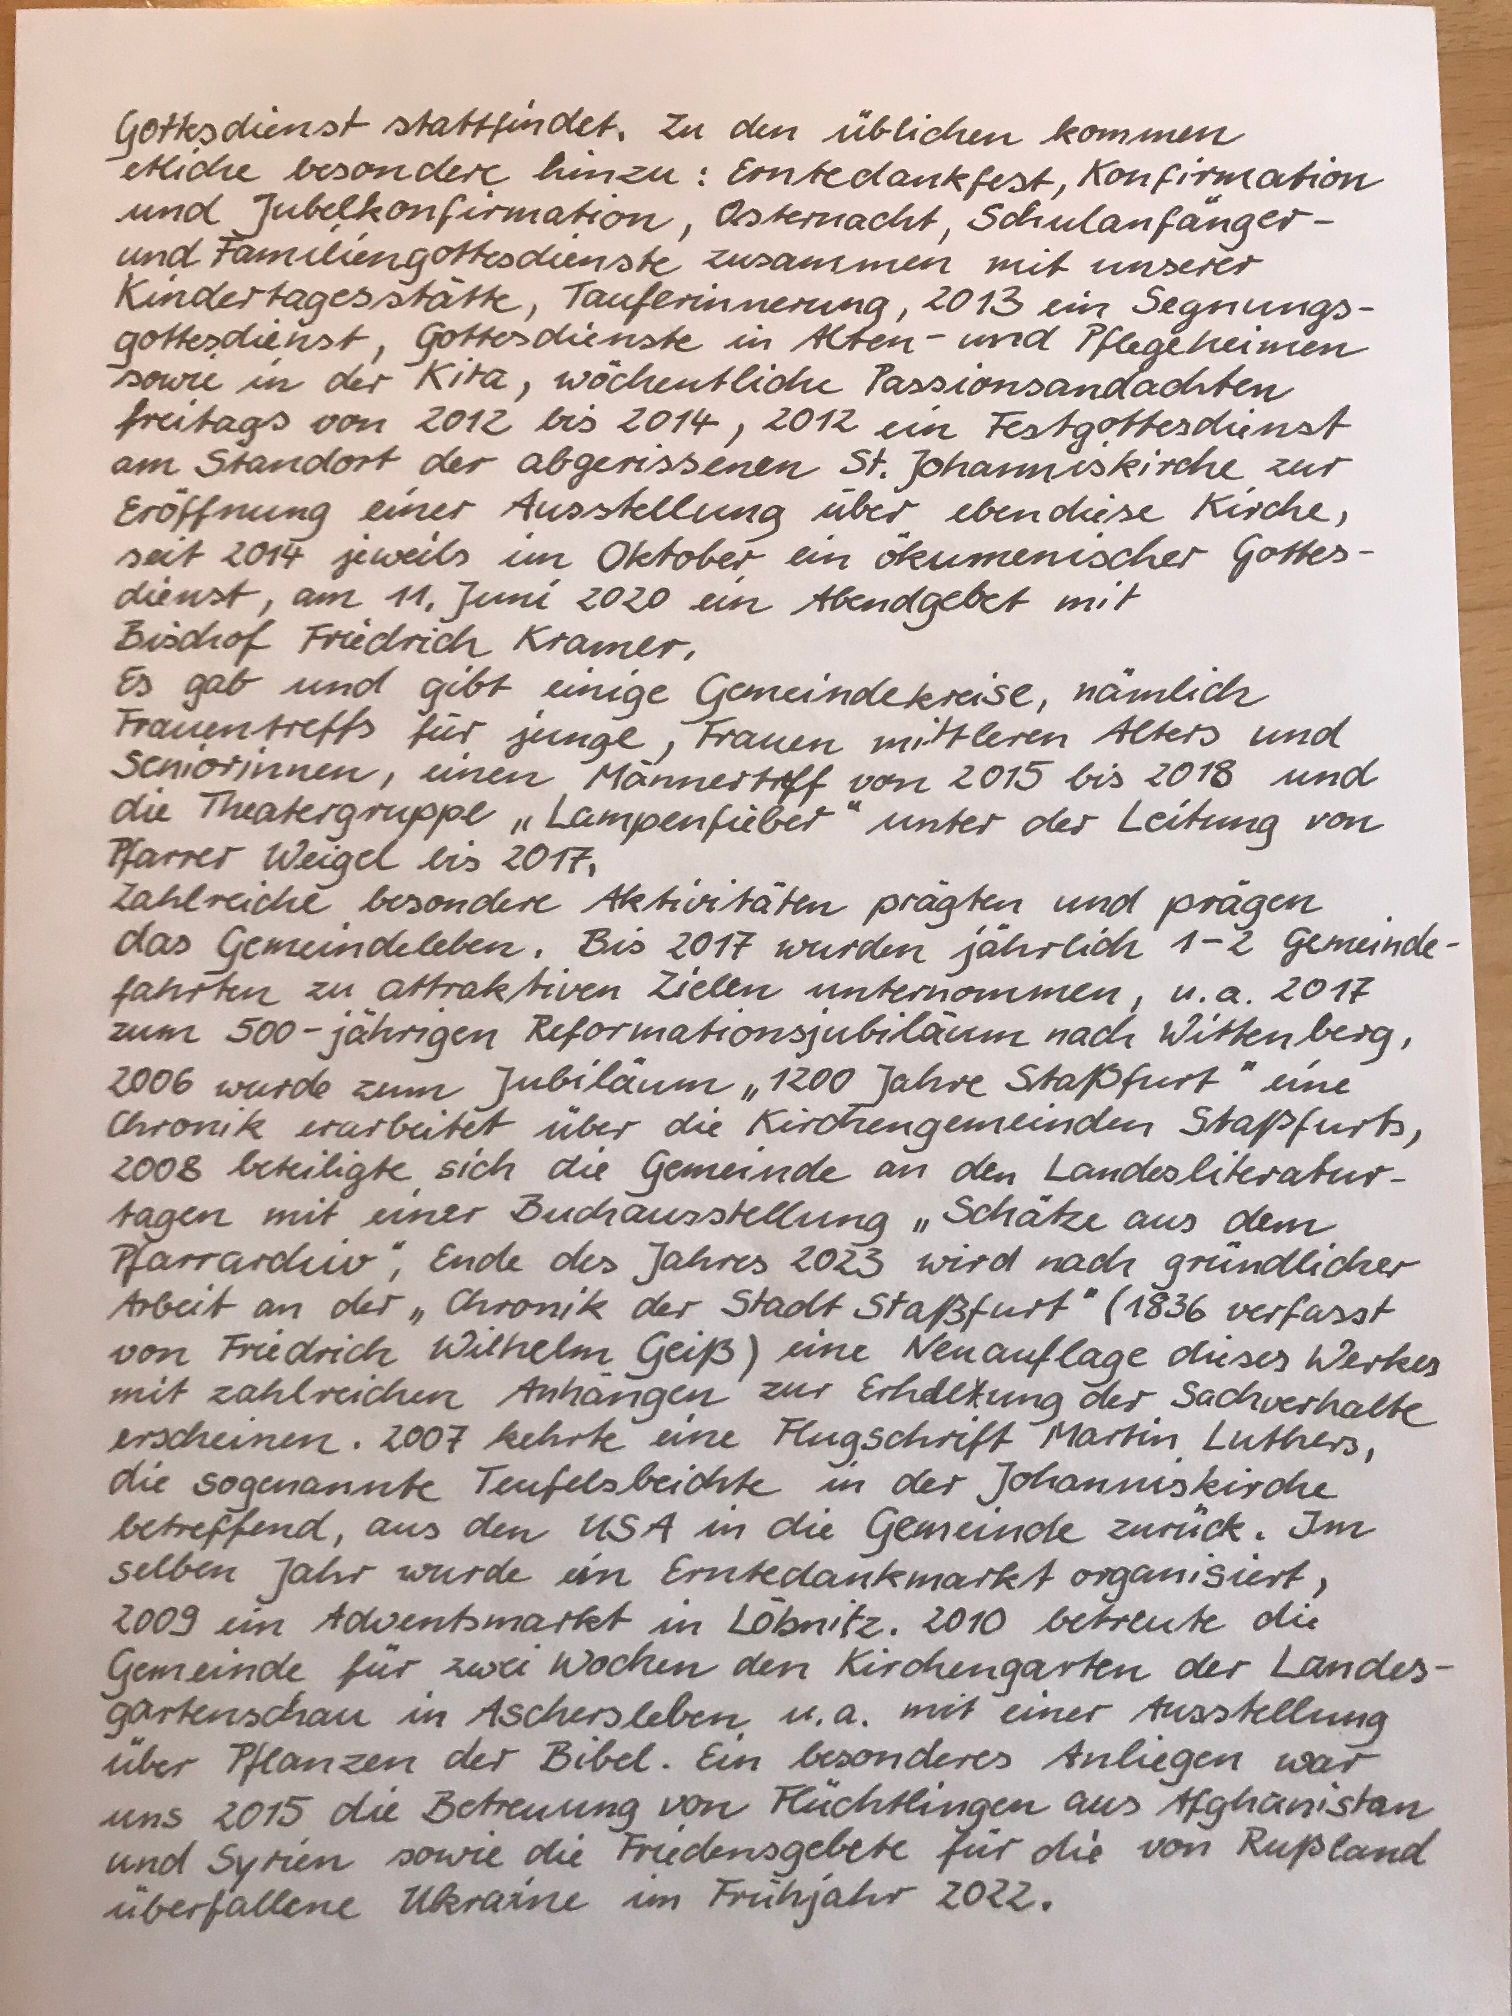 Gottesdienst stattfindet. Zu den üblichen kommen
etliche besondere hinzu: Erntedankfest, Konfirmation
und Jubelkonfirmation, Osternacht, Schulanfänger-
und Familiengottesdienste zusammen mit unserer
Kindertagesstätte, Tauferinnerung, 2013 ein Segnungs-
gottesdienst, Gottesdienste in Alten- und Pflegeheimen
sowie in der Kita, wöchentliche Passionsandachten
freitags von 2012 bis 2014, 2012 ein Festgottesdienst
am Standort der abgerissenen St. Johanniskirche zur
Eröffnung einer Ausstellung über ebendiese Kirche,
seit 2014 jeweils im Oktober ein ökumenischer Gottes-
dienst, am 11. Juni 2020 ein Abendgebet mit
Bischof Friedrich Kramer.
Es gab und gibt einige Gemeindekreise, nämlich
Frauentreffs für junge, Frauen mittleren Alters und
Seniorinnen, einen Männertreff von 2015 bis 2018 und
die Theatergruppe „Lampenfieber“ unter der Leitung von
Pfarrer Weigel bis 2017.
Zahlreiche besondere Aktivitäten prägten und prägen
das Gemeindeleben. Bis 2017 wurden jährlich 1-2 Gemeinde-
fahrten zu attraktiven Zielen unternommen, u.a. 2017
zum 500-jährigen Reformationsjubiläum nach Wittenberg.
2006 wurde zum Jubiläum „1200 Jahre Staßfurt“ eine
Chronik erarbeitet über die Kirchengemeinden Staßfurts,
2008 beteiligte sich die Gemeinde an den Landesliteratur-
tagen mit einer Buchausstellung „Schätze aus dem
Pfarrarchiv“, Ende des Jahres 2023 wird nach gründlicher
Arbeit an der „Chronik der Stadt Staßfurt“ (1836 verfasst
von Friedrich Wilhelm Geiß) eine Neuauflage dieses Werkes
mit zahlreichen Anhängen zur Erhellung der Sachverhalte
erscheinen. 2007 kehrte eine Flugschrift Martin Luthers,
die sogenannte Teufelsbeichte in der Johanniskirche
betreffend, aus den USA in die Gemeinde zurück. Im
selben Jahr wurde ein Erntedankmarkt organisiert,
2009 ein Adventsmarkt in Löbnitz. 2010 betreute die
Gemeinde für zwei Wochen den Kirchengarten der Landes-
gartenschau in Aschersleben u.a. mit einer Ausstellung
über Pflanzen der Bibel. Ein besonderes Anliegen war
uns 2015 die Betreuung von Flüchtlingen aus Afghanistan
und Syrien sowie die Friedensgebete für die von Rußland
überfallene Ukraine im Frühjahr 2022.